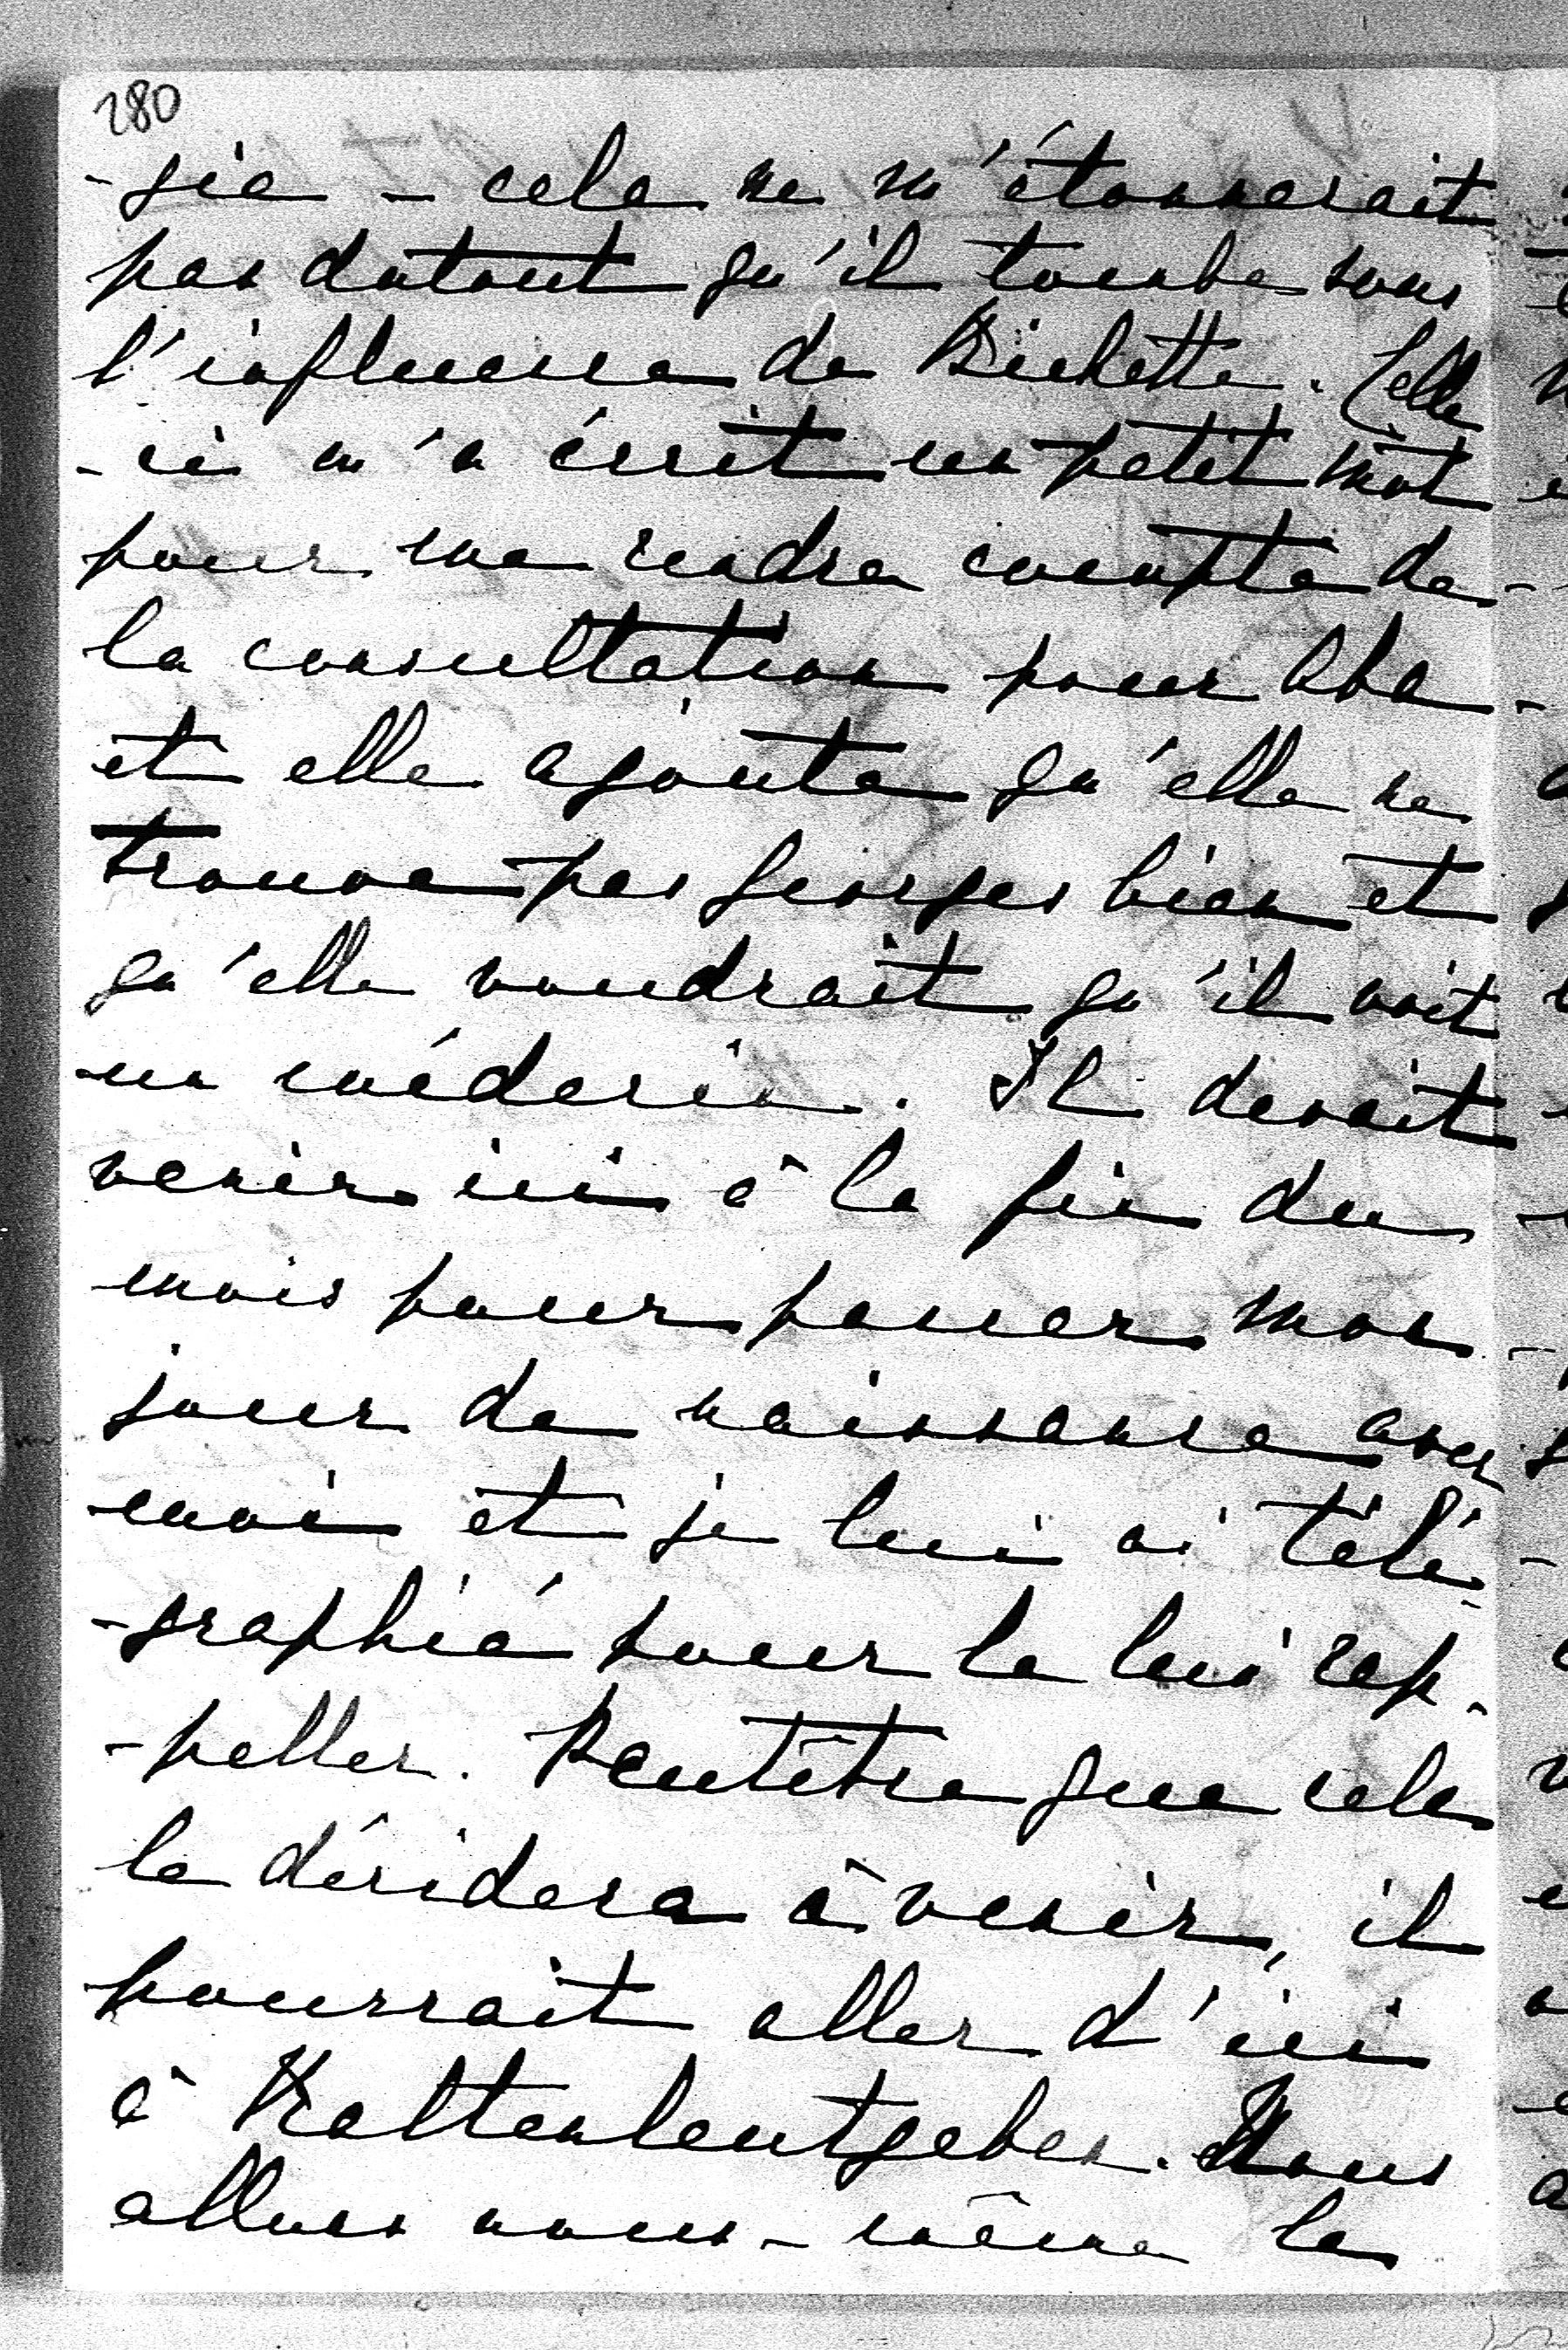 280
-gie - cela ne m'étonnerait
pas dutout qu'il tombe sous
l'influence de Bichette. Celle
-ci m'a écrit un petit mot
pour me rendre compte de
la consultation pour
et elle ajoute qu'elle ne
trouve pas Georges bien et
qu'elle voudrait qu'il voit
un médecin. Il devait
venir ici à la fin du
mois pour passer mon
jour de naissance avec
moi et je lui ai télé-
-graphié pour le lui rap-
-peller. Peutêtre que cela
le décidera à venir, il
pourrait aller d'ici
à Kaltenleutgeben. Nous
allons nous-même le